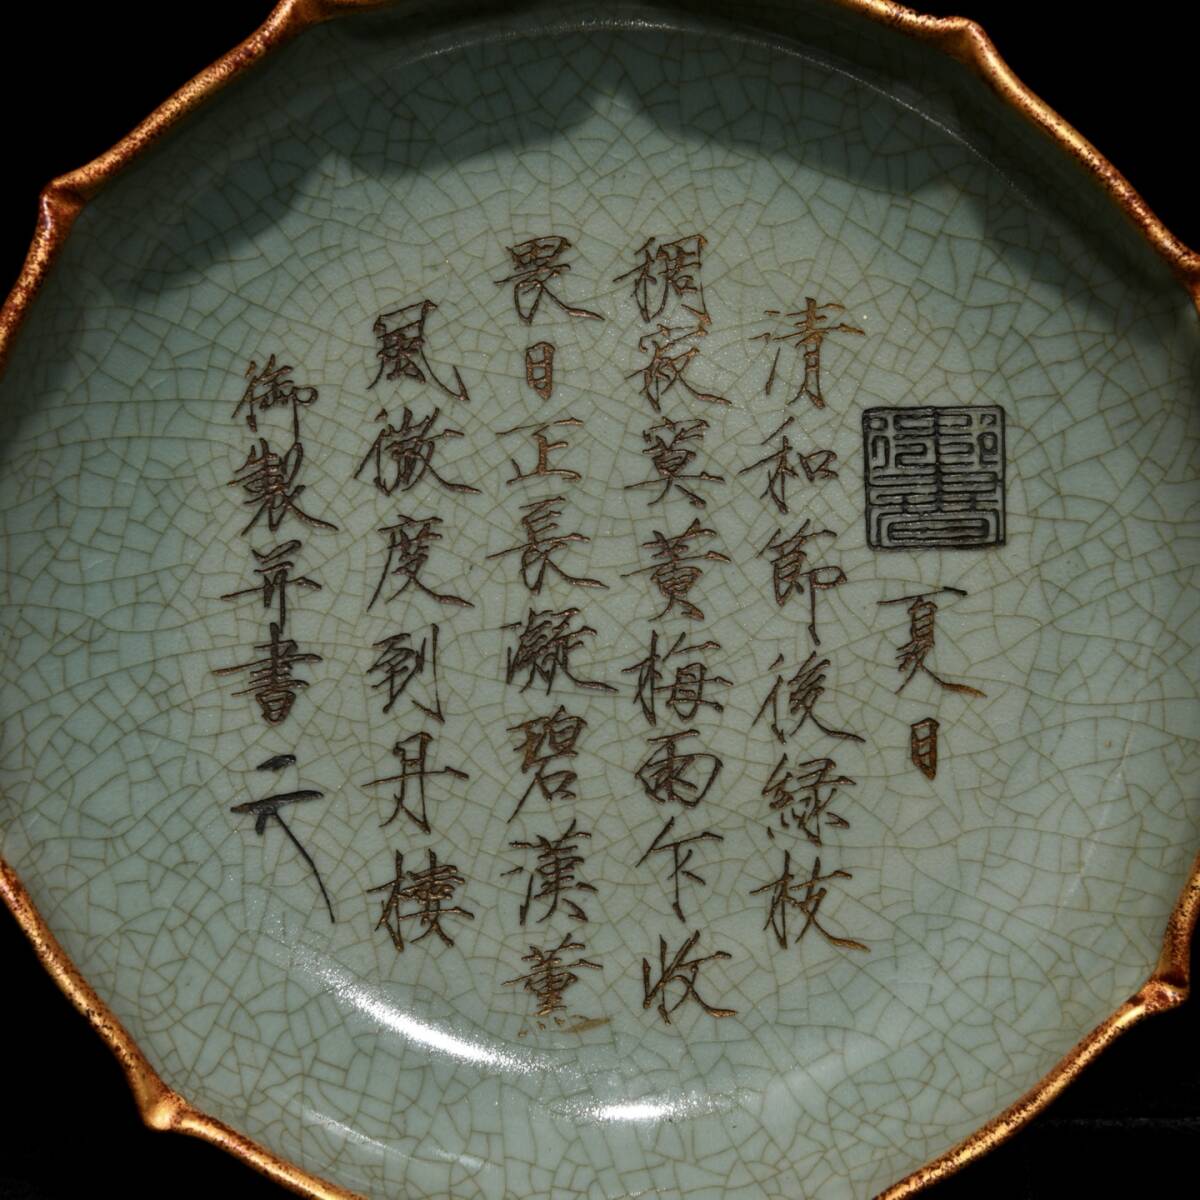 御書
夏日
清和節後綠枝
稠寂寞黃梅雨乍收
畏日正長凝碧漢薰
風微度到丹樓
御製並書